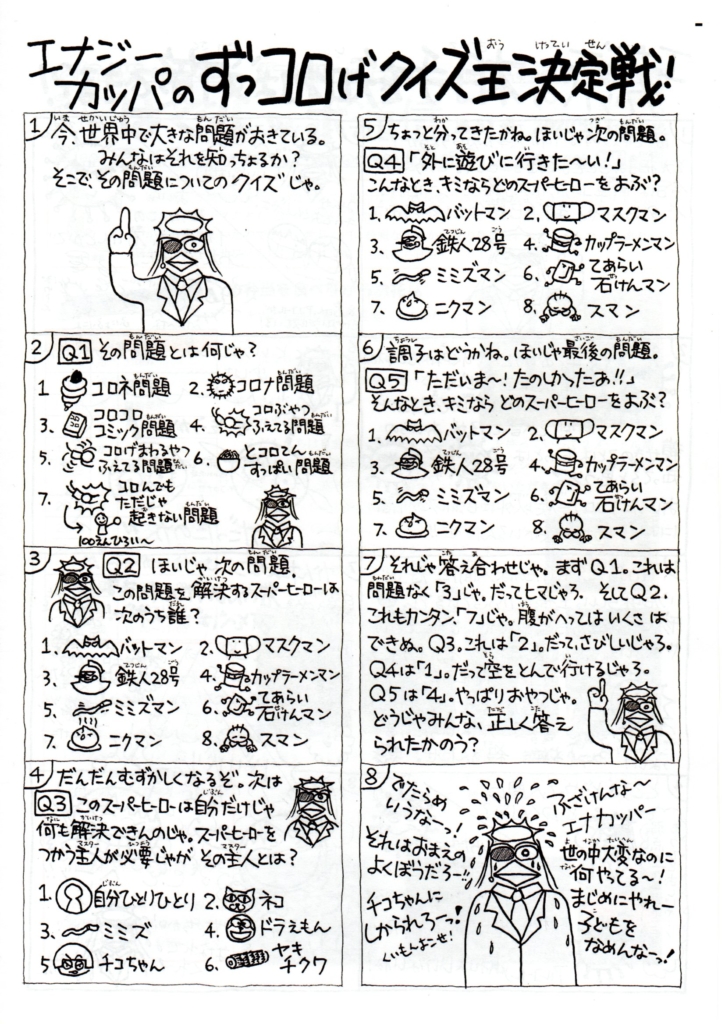 エナジー
カッパのずっコロげクイズ王決定戦!
1 今、世界中で大きな問題がおきている。
みんなはそれを知っちょるか?
そこで、その問題についてのクイズじゃ。
2 Q1 その問題とは何じゃ?
1 コロネ問題 2. コロナ問題
3. コロコロコミック問題 4. コロぶやつふえてる問題
5. コロげまわるやつふえてる問題 6. ところてんすっぱい問題
7. コロんでもただじゃ起きない問題
100えんひろい〜
3 Q2 ほいじゃ次の問題.
この問題を解決するスーパーヒーローは
次のうち誰?
1. バットマン 2. マスクマン
3. 鉄人28号 4. カップラーメンマン
5. ミミズマン 6. てあらい石けんマン
7. ニクマン 8. スマン
4 だんだんむずかしくなるぞ。次は
Q3 このスーパーヒーローは自分だけじゃ
何も解決できんのじゃ。スーパーヒーローを
つかう主人が必要じゃが その主人とは?
1. 自分ひとりひとり 2. ネコ
3. ミミズ 4. ドラえもん
5 チコちゃん 6. ヤキチクワ
5 ちょっと分ってきたかね。ほいじゃ次の問題。
Q4 「外に遊びに行きた〜い!」
こんなとき、キミならどのスーパーヒーローをよぶ?
1、バットマン 2、マスクマン
3. 鉄人28号 4. カップラーメンマン
5. ミミズマン 6. てあらい石けんマン
7. ニクマン 8. スマン
6 調子はどうかね。ほいじゃ最後の問題。
Q5 「ただいま〜!たのしかったあ!!」
そんなとき、キミなら どのスーパーヒーローをよぶ?
1、バットマン 2、マスクマン
3. 鉄人28号 4. カップラーメンマン
5. ミミズマン 6. てあらい石けんマン
7. ニクマン 8. スマン
7 それじゃ答え合わせじゃ。まずQ1。これは
問題なく「3」じゃ。だってヒマじゃろ. そしてQ2.
これもカンタン、「7」じゃ。腹がへってはいくさは
できぬ。Q3。これは「2」。だって、さびしいじゃろ。
Q4は「1」。だって空をとんで行けるじゃろ。
Q5は「4」。やっぱりおやつじゃ。
どうじゃみんな、正しく答え
られたかのう?
8 でたらめ
いうなーっ!
それはおまえの
よくぼうだろー!!
チコちゃんに
しかられろーっ!
ふざけんな〜
エナカッパー
世の中大変なのに
何やってる〜!
まじめにやれー
子どもを
なめんなーっ!